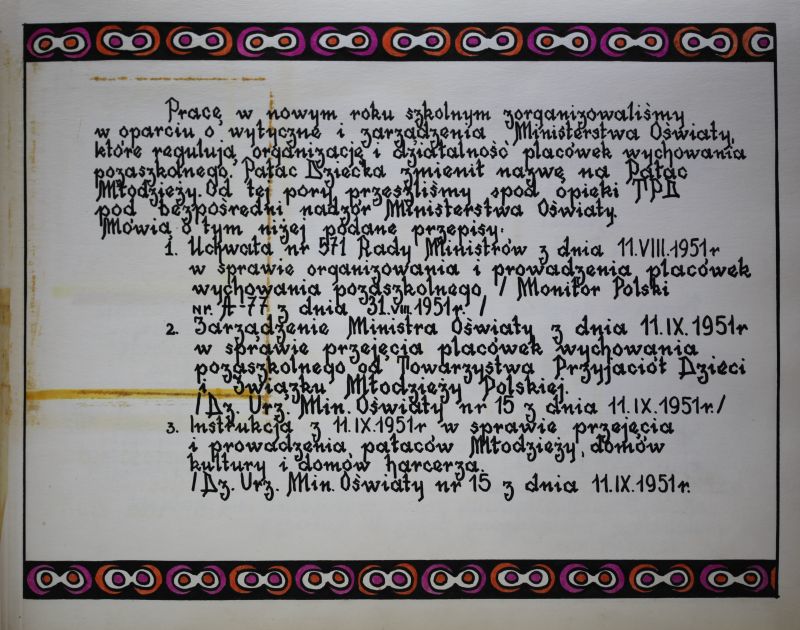 Pracę w nowym roku szkolnym zorganizowaliśmy
w oparciu o wytyczne i zarządzenia Ministerstwa Oświaty,
które regulują organizację i działalność placówek wychowania
pozaszkolnego. Pałac Dziecka zmienił nazwę na Pałac
Młodzieży. Od tej pory przeszliśmy spod opieki TPD
pod bezpośredni nadzór Ministerstwa Oświaty.
Mówią o tym niżej podane przepisy:
1. Uchwała nr 571 Rady Ministrów z dnia 11.VIII.1951r
w sprawie organizowania i prowadzenia placówek
wychowania pozaszkolnego / Monitor Polski
nr A-77 z dnia 31.VIII.1951r. /
2. Zarządzenie Ministra Oświaty z dnia 11.IX.1951r
w sprawie przejęcia placówek wychowania
pozaszkolnego od Towarzystwa Przyjaciół Dzieci
i Związku Młodzieży Polskiej.
/Dz. Urz. Min. Oświaty nr 15 z dnia 11.IX.1951r./
3. Instrukcja z 11.IX.1951r w sprawie przejęcia
i prowadzenia pałaców Młodzieży, domów
kultury i domów harcerza.
/Dz. Urz. Min. Oświaty nr 15 z dnia 11.IX.1951r.